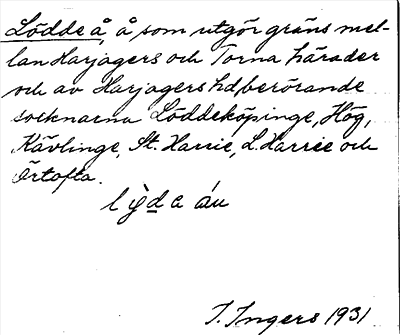 Lödde å, å som utgör gräns mel-
lan Harjagers och Torna härader
och av Harjagers hd, berörande
socknarna Löddeköpinge, Hög,
Kävlinge, St. Harrie, L. Harrie och
Örtofta.
I. Ingers 1931